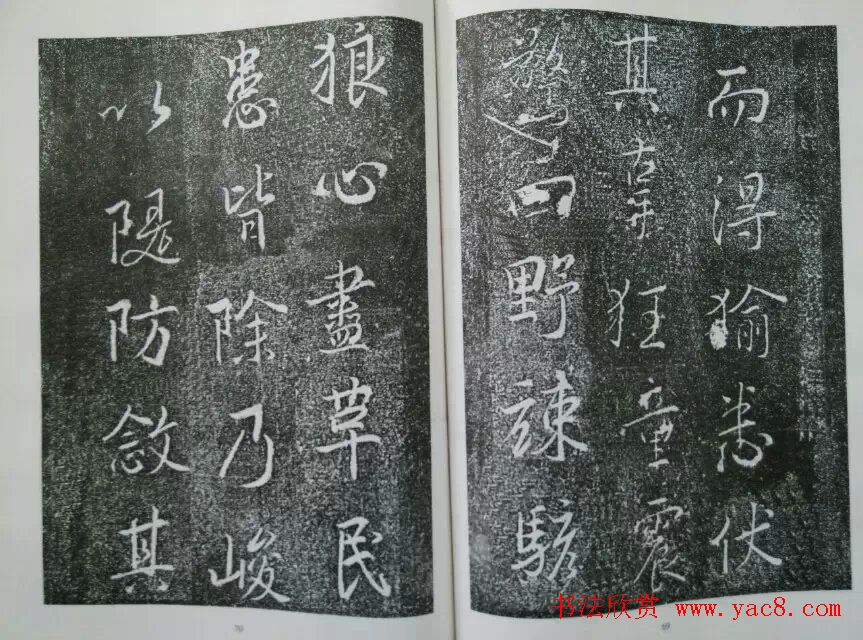 而得悉伏
其辜狂童震
四野竦駭
狼心盡革民
患皆除乃峻
以隄防斂其
70
69
书法欣赏 www.yac8.com